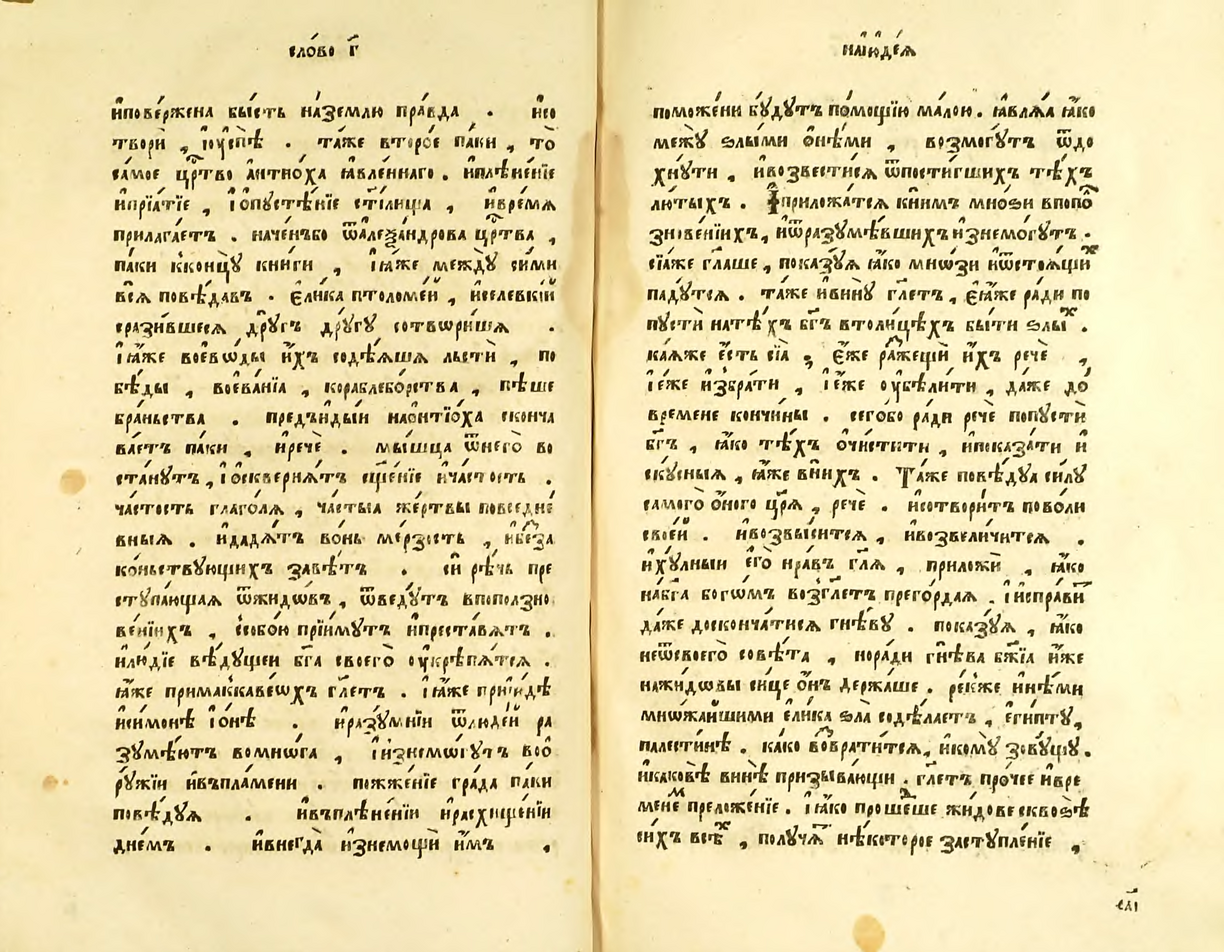 сло́во г҃
и҆пове́ржена бы́сть на́землю пра́вда . и҆со
твори̂ , і҆ᲂу҆спѣ̀ . та́же второ́е па́ки , то̀
са́мое цр҇тво а҆нтиѻ́ха ꙗ҆вле́ннаго . и҆плѣне́нїе
и҆прїѧ́тїе , і҆ѻ҆пꙋстѣ́нїе ст҃и́лища , и҆вре́мѧ
прилага́етъ . наче́нъбо ѿа҆леѯа́ндрова цр҇тва ,
па́ки кконцꙋ̀ кни́ги , і҆ꙗ҆́же междꙋ̀ си́ми
всѧ̑ повѣ́давъ . є҆ли́ка птоломе́й , и҆селе́вкїй
срази́вшесѧ дрꙋ́гъ дрꙋ́гꙋ сотвори́шѧ .
і҆ꙗ҆́же воево́ды и҆́хъ содѣ́ѧшѧ льсти̂ , по
бѣ́ды , воева́нїа , кораблебо́рства , пѣ́ше
бра́ньства . предъи́дый наа҆нтїо́ха сконча
ва́етъ па́ки , и҆речѐ . мы́шца ѿнегѡ̀ во
ста́нꙋтъ , і҆ѡ҆сквернѧ́тъ сщ҃е́нїе и҆ча́стость .
ча́стость глаго́лѧ , ча́стыа же́ртвы повседне́
вныѧ . и҆дадѧ́тъ во́нь ме́рзость , и҆беза
ко́ньствꙋющихъ завѣ́тъ . сѝ рѣ́чь пре
стꙋпа́ющаѧ ѿжидѡ́въ , ѿведꙋ́тъ впоползно
ве́нїихъ , ссобо́ю прїи́мꙋтъ и҆преста́вѧтъ .
и҆лю́дїе вѣ́дꙋщеи бг҃а своего̀ ᲂу҆крѣпѧ́тсѧ .
ꙗ҆́же примаккаве́ѡхъ гл҃етъ . і҆ꙗ҆́же прїи́дѣ
и҆си́монѣ і҆ѡ҆́нѣ . и҆разꙋ́мнїи ѿлюде́й ра
зꙋмѣ́ютъ вомнѡ́га , і҆и҆знемо́гꙋтъ воѡ҆
рꙋ́жїи и҆въпла́мени . пожже́нїе гра́да па́ки
повѣ́дꙋѧ . и҆въплѣне́нїи и҆расхище́нїи
дне́мъ . и҆внегда̀ и҆знемощѝ и҆́мъ ,
наїꙋде́ѧ
поможе́ни бꙋ́дꙋтъ по́мощїю ма́лою . ꙗ҆влѧ́ѧ ꙗ҆́ко
межꙋ̀ ѕлы́ми ѻ҆нѣ́ми , возмо́гꙋтъ ѿдо
хнꙋ́ти , и҆возвести́сѧ ѿпости́гшихъ тѣ́хъ
лю́тыхъ . і҆приложа́тсѧ кни́мъ мно́ѕи впопо́
зновенїихъ , и҆ѿразꙋмѣ́вшихъ и҆знемо́гꙋтъ .
сїѧ́же гл҃аше , показꙋ́ѧ ꙗ҆́ко мнѡ́зи и҆ѿстоѧ́щихъ
падꙋ́тсѧ . та́же и҆винꙋ̀ гл҃етъ , є҆ѧ́же ра́ди по
пꙋстѝ на́тѣхъ бг҃ъ втоли́цѣхъ бы́ти ѕлы́хъ .
ка́ѧже є҆́сть сїѧ̀ ; є҆́же ра́жещи и҆́хъ речѐ ,
і҆е҆́же и҆збра́ти , і҆е҆́же ᲂу҆бѣли́ти , да́же до̀
вре́мене кончи́ны . сегѡ̀бо ра́ди речѐ попꙋстѝ
бг҃ъ , ꙗ҆́ко тѣ́хъ ѡ҆чи́стити , и҆показа́ти и҆
скꙋ́сныѧ , ꙗ҆́же вни́хъ . Та́же повѣ́дꙋа си́лꙋ
самого̀ ѻ҆́ного цр҃ѧ̀ , речѐ . и҆сотвори́тъ пово́ли
свое́й . и҆возвы́ситсѧ , и҆возвели́читсѧ .
и҆хꙋ́лныи є҆го̀ нра́въ гл҃ѧ , приложѝ , ꙗ҆́ко
на́бг҃а богѡ́мъ возгл҃етъ прего́рдаѧ . і҆и҆спра́витъ
да́же досконча́тисѧ гнѣ́вꙋ . показꙋ́ѧ , ꙗ҆́ко
неѿсвоего̀ совѣ́та , нора́ди гнѣ́ва бж҃їа и҆́же
нажидо́вы си́це ѻ҆́нъ держа́ше . ре́кже и҆нѣ́ми
мно́жайшими є҆ли́ка ѕла̀ содѣ́лаетъ , є҆ги́птꙋ ,
палести́нѣ . ка́ко возврати́тсѧ , и҆комꙋ̀ зовꙋ́щꙋ .
и҆какове́ винѣ̀ призыва́ющи . гл҃етъ про́чее и҆вре
менем преложе́нїе . і҆ꙗ҆́ко проше́дше жи́дове сквоѕѣ̀
си́хъ всѣ́хъ , полꙋча́тъ нѣ́которое застꙋпле́нїе ,